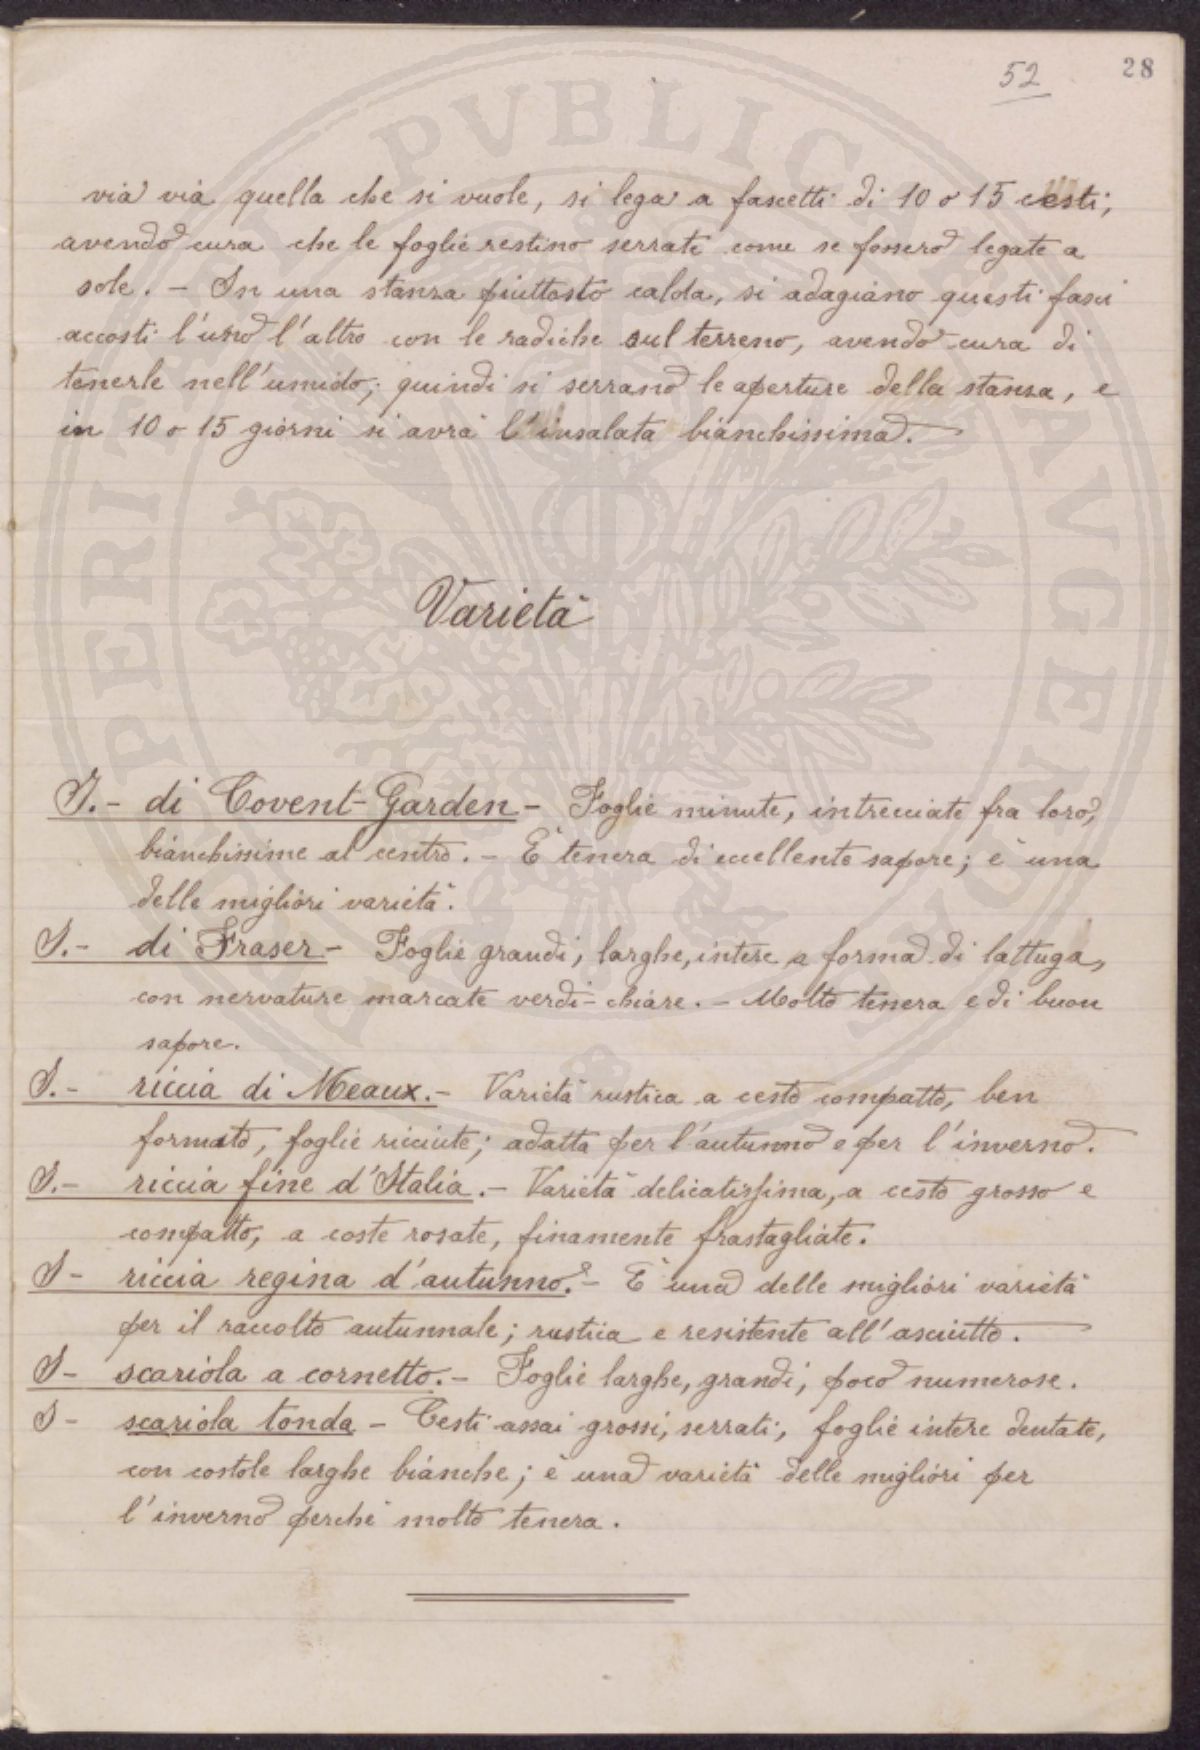 52
28
via via quella che si vuole, si lega a fascetti di 10 o 15 cesti,
avendo cura che le foglie restino serrate come se fossero legate a
sole. - In una stanza piuttosto calda, si adagiano questi fasci
accosti l'uno l'altro con le radiche sul terreno, avendo cura di
tenerle nell'umido; quindi si serrano le aperture della stanza, e
in 10 o 15 giorni si avrà l'insalata bianchissima.
Varietà
I.- di Covent-Garden - Foglie minute, intrecciate fra loro,
bianchissime al centro. - È tenera di eccellente sapore; è una
delle migliori varietà.
I.- di Fraser - Foglie grandi, larghe, intere a forma di lattuga,
con nervature marcate verdi-chiare. - Molto tenera e di buon
sapore.
I.- riccia di Meaux. - Varietà rustica a cesto compatto, ben
formato, foglie ricciute; adatta per l'autunno e per l'inverno.
I.- riccia fine d'Italia. - Varietà delicatissima, a cesto grosso e
compatto, a coste rosate, finamente frastagliate.
I - riccia regina d'autunno. - È una delle migliori varietà
per il raccolto autunnale; rustica e resistente all'asciutto.
I - scariola a cornetto. - Foglie larghe, grandi, poco numerose.
I - scariola tonda - Cesti assai grossi, serrati, foglie intere dentate,
con costole larghe bianche; è una varietà delle migliori per
l'inverno perchè molto tenera.